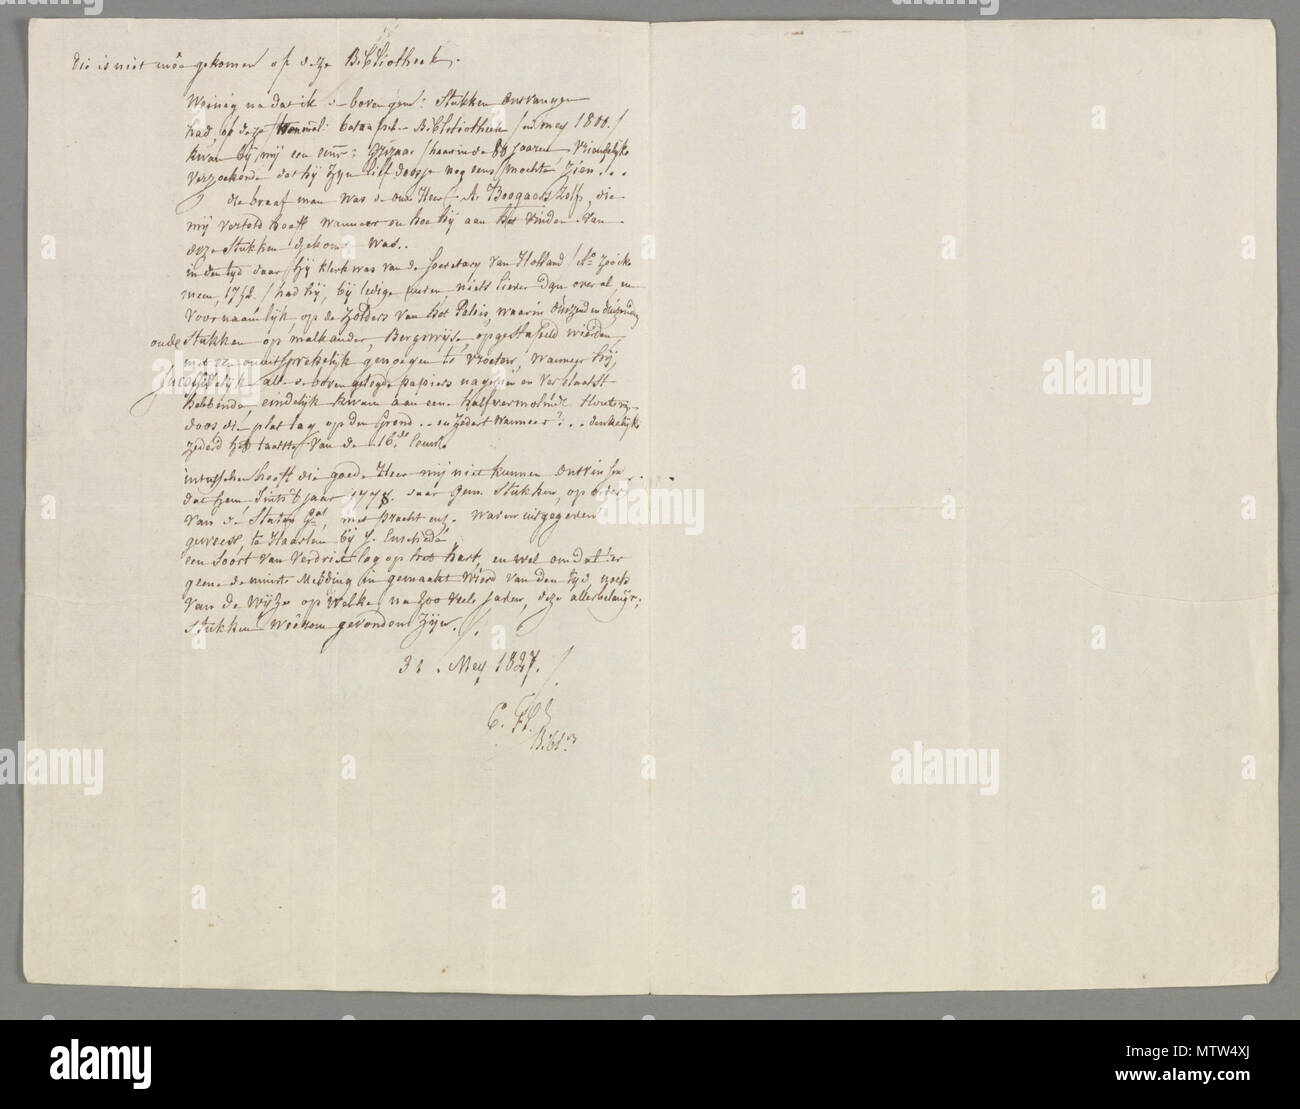 die is niet mêe gekomen op deze Bibliotheek.
Weinig na dat ik de boven gem: Stukken Ontvangen
had, op deze Bibliotheek / in mey 1800. /
kwam bij mij een grijzaar / haar in de 80 jaaren vriendelijk
verzoekende dat hij zijn lief doosje nog eens mochte zien...
die braaf man was de oude Heer A. Boogaers Zelf, die
mij verteld heeft wanneer en hoe hij aan het vinden van
deze Stukken gekomen was..
in den tyd daar hij klerk was van de Secretary van Holland / Ao
1752. / had hij, bij ledige uuren niets liever dan over al, en
voornaamlijk, op de Zolders van het Paleis, waarin
oude Stukken op malkander, Bergswijse, opgestapeld wierden,
met een onuitsprekelijk genoegen te vroeten, wanneer hij,
alle de boven gelegde papiers nagezien en verplaatst
hebbende, eindelijk kwam aan een half vermolmde Houten
doos die plat lag op den Grond.. en zedert wanneer?... denkelijk
zederd het laatste van de 16de Eeuw.
intusschen heeft die goede Heer mij niet kunnen Ontveinsen
dat hem Sints 't jaar 1778. daar gem. Stukken, op order
van de Staten Gal, met pracht enz. waren uitgegeven
geweest, te Haarlem bij J. Enschedé
een Soort van verdriet lag op het hart, en wel om dat er
geene de minste Melding in gemaakt wierd van den tyd, noch
van de wijze op welke, na zoo veele jaren, deze allerbelangr:
stukken weêrom gevonden zijn.
31. Mey 1827.
C. Fl.
Bibl.
alamy
Image ID: MTW4XJ
www.alamy.com